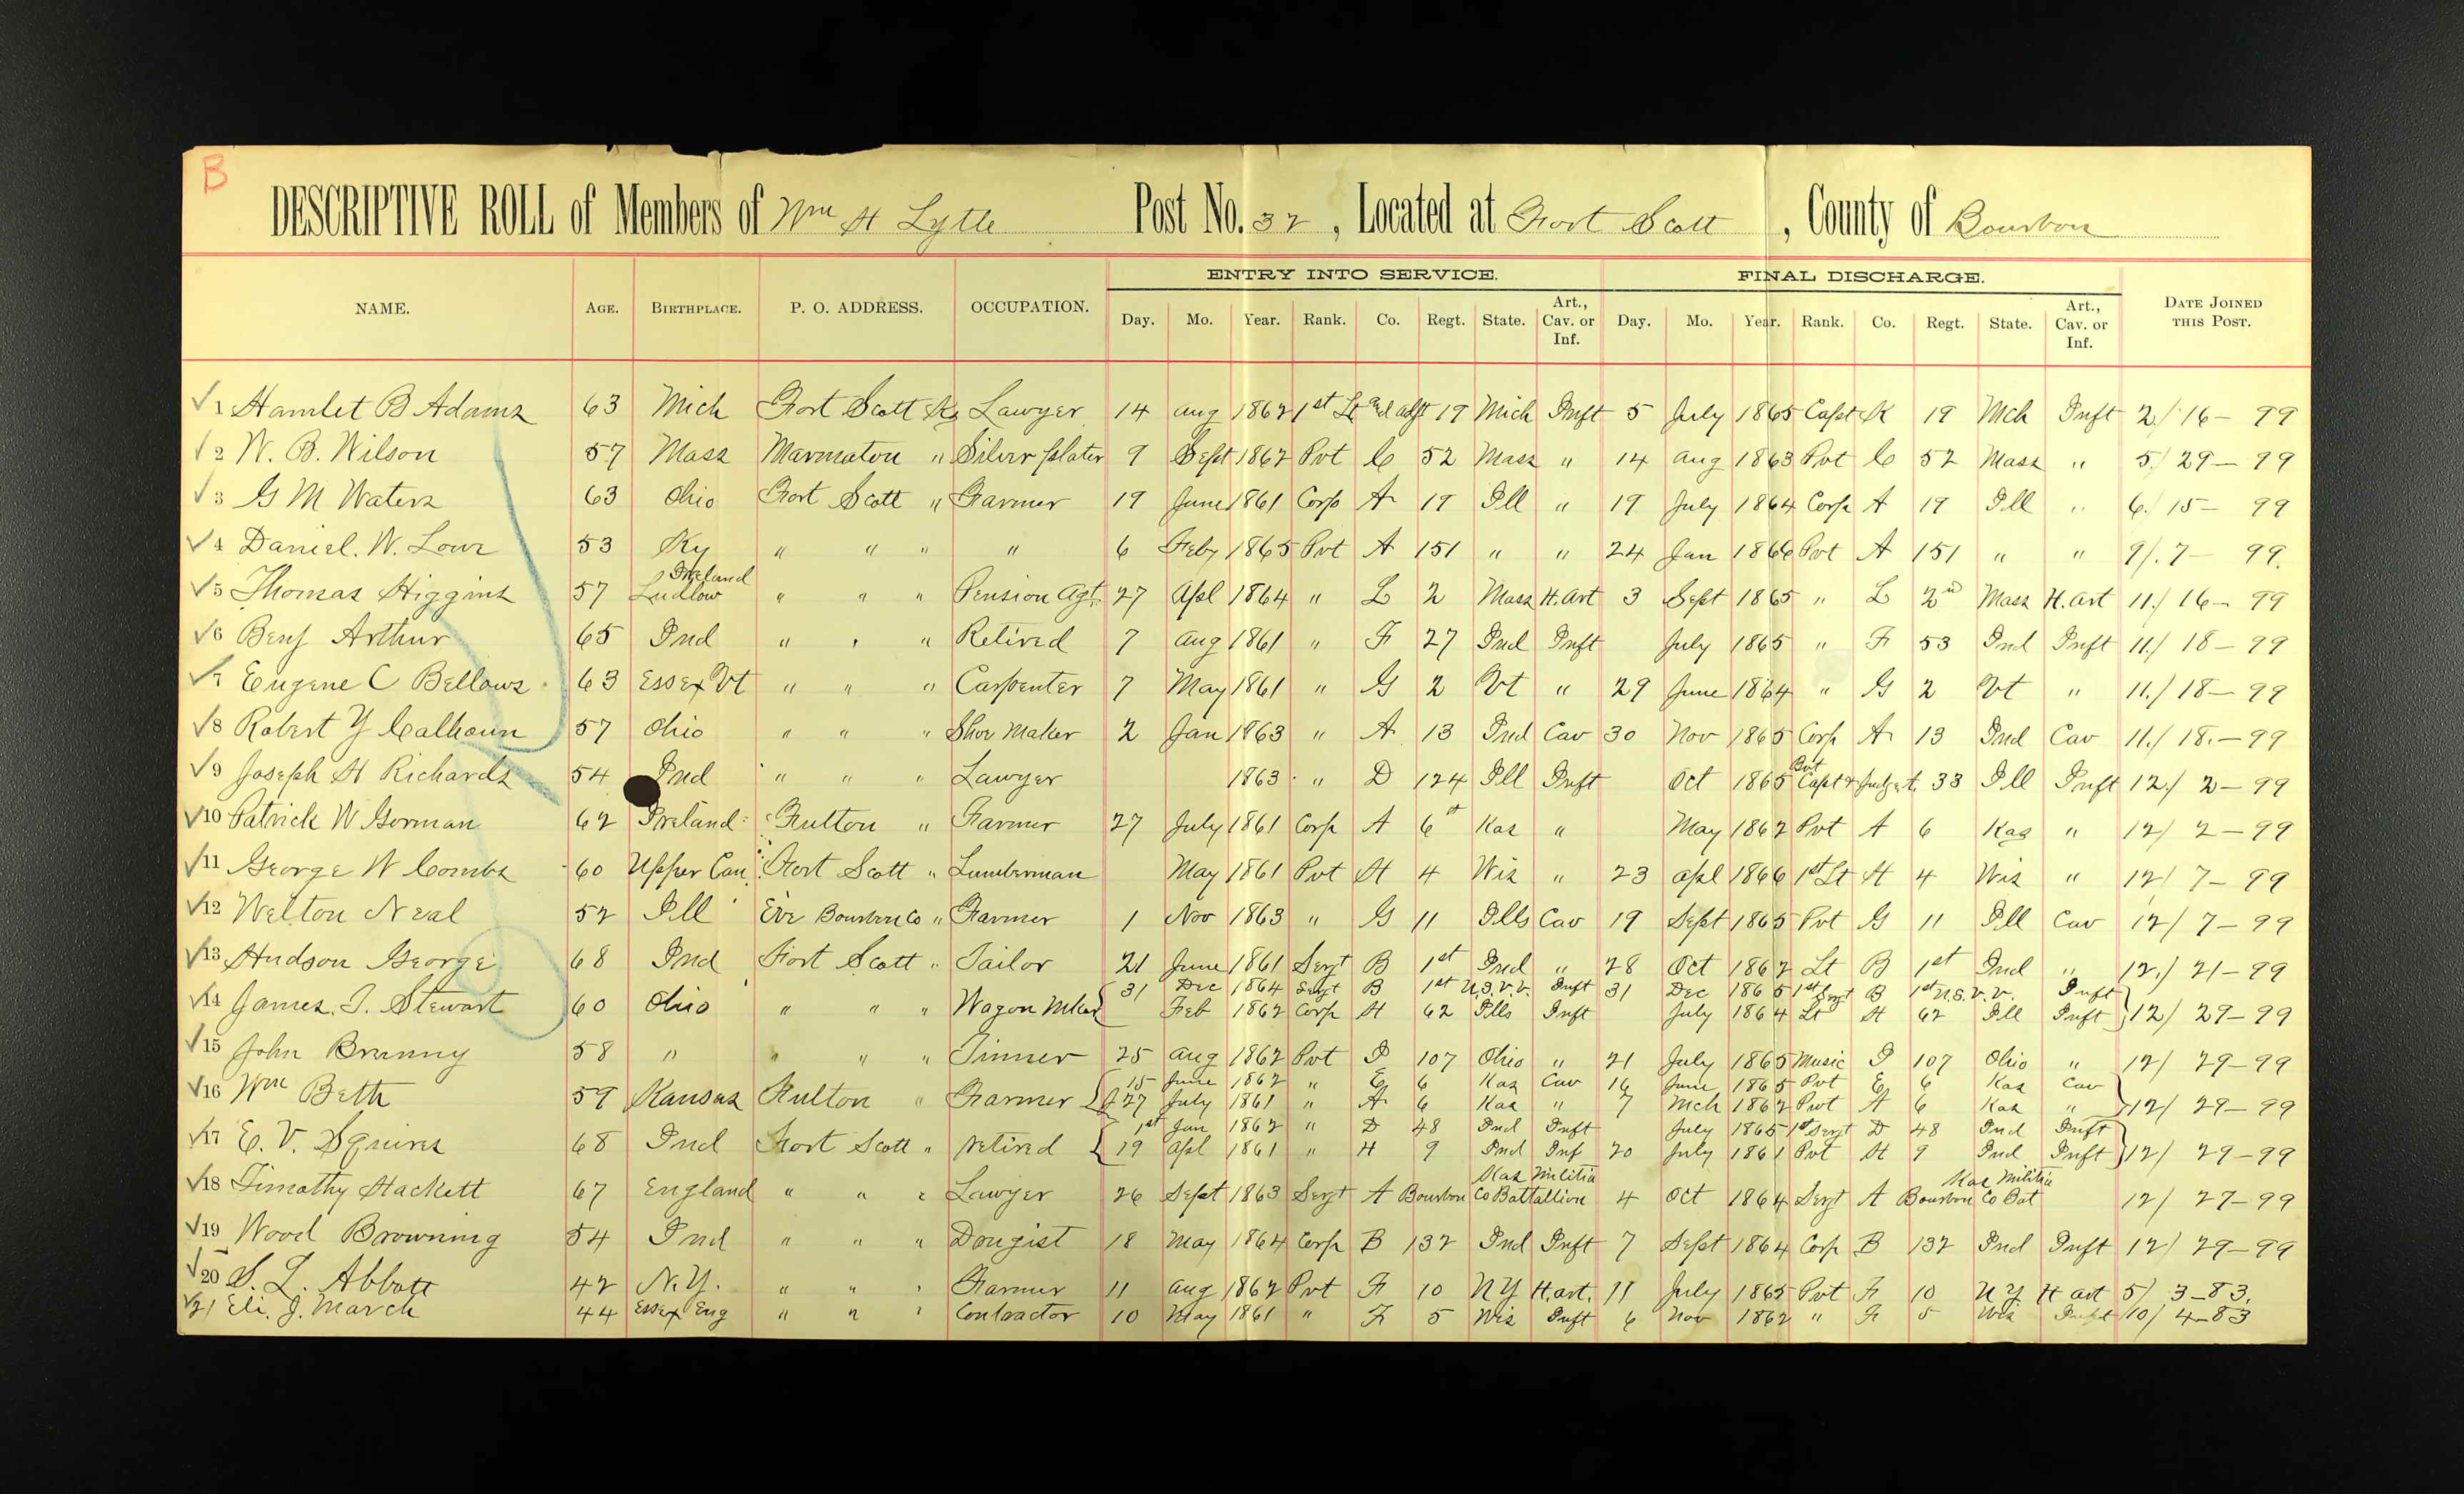 B
DESCRIPTIVE ROLL of Members of Wm H Lytle Post No. 32, Located at Fort Scott, County of Bourbon
ENTRY INTO SERVICE. FINAL DISCHARGE.
NAME. AGE. BIRTHPLACE. P. O. ADDRESS. OCCUPATION. Day. Mo. Year. Rank. Co. Regt. State. Art., Cav. or Inf. Day. Mo. Year. Rank. Co. Regt. State. Art., Cav. or Inf. DATE JOINED THIS POST.
✓ 1 Hamlet B Adams 63 Mich Fort Scott Ks Lawyer 14 Aug 1862 1st Lt and adjt 19 Mich Inft 5 July 1865 Capt K 19 Mch Inft 2/16-99
✓ 2 W. B. Wilson 57 Mass Marmaton " Silver plater 9 Sept 1862 Pvt C 52 Mass " 14 Aug 1863 Pvt C 52 Mass " 5/29-99
✓ 3 G M Waters 63 Ohio Fort Scott " Farmer 19 June 1861 Corp A 19 Ill " 19 July 1864 Corp A 19 Ill " 6/15-99
✓ 4 Daniel. W. Lowe 53 Ky " " " " 6 Feby 1865 Pvt A 151 " " 24 Jan 1866 Pvt A 151 " " 9/.7-99.
✓ 5 Thomas Higgins 57 Ludlow Ireland " " " Pension Agt. 27 Apl 1864 " L 2 Mass H. Art 3 Sept 1865 " L 2nd Mass H. Art 11./16-99
✓ 6 Benj Arthur 65 Ind " " " Retired 7 Aug 1861 " F 27 Ind Inft July 1865 " F 53 Ind Inft 11./18-99
✓ 7 Eugene C Bellows 63 Essex Vt " " " Carpenter 7 May 1861 " G 2 Vt " 29 June 1864 " G 2 Vt " 11./18-99
✓ 8 Robert Y Calhoun 57 Ohio " " " Shoe Maker 2 Jan 1863 " A 13 Ind Cav 30 Nov 1865 Corp A 13 Ind Cav 11./18.-99
✓ 9 Joseph H Richards 54 Ind " " " Lawyer 1863 " D 124 Ill Inft Oct 1865 Bvt Capt & 33 Ill Inft 12./2-99
✓ 10 Patrick W Gorman 62 Ireland Fulton " Farmer 27 July 1861 Corp A 6th Kas " May 1862 Pvt A 6 Kas " 12/2-99
✓ 11 George W Combs 60 Upper Can Fort Scott " Lumberman May 1861 Pvt H 4 Wis " 23 Apl 1866 1st Lt H 4 Wis " 12/7-99
✓ 12 Welton Neal 52 Ill Eve Bourbon Co " Farmer 1 Nov 1863 " G 11 Ills Cav 19 Sept 1865 Pvt G 11 Ill Cav 12/7-99
✓ 13 Hudson George 68 Ind Fort Scott " Tailor 21 June 1861 Sergt B 1st Ind " 28 Oct 1862 Lt B 1st Ind " 12./21-99
31 Dec 1864 Sergt B 1st U.S.V.V. Inft 31 Dec 1865 1st Sergt B 1st U.S.V.V. Inft
✓ 14 James. T. Stewart 60 Ohio " " " Wagon Mker Feb 1862 Corp H 62 Ills Inft July 1864 Lt H 62 Ill Inft 12/29-99
✓ 15 John Brunny 58 " " " " Tinner 25 Aug 1862 Pvt I 107 Ohio " 21 July 1865 Music I 107 Ohio " 12/29-99
15 June 1862 " E 6 Kas Cav 16 June 1865 Pvt E 6 Kas Cav
✓ 16 Wm Beth 59 Kansas Fulton " Farmer 27 July 1861 " A 6 Kas " 7 Mch 1862 Pvt A 6 Kas " 12/29-99
1st Jan 1862 " D 48 Ind Inft July 1865 1st Sergt D 48 Ind Inft
✓ 17 E. V. Squires 68 Ind Fort Scott " Retired 19 Apl 1861 " H 9 Ind Inf 20 July 1861 Pvt H 9 Ind Inft 12/29-99
Kas Militia Kas Militia
✓ 18 Timothy Hackett 67 England " " " Lawyer 26 Sept 1863 Sergt A Bourbon Co Battallion 4 Oct 1864 Sergt A Bourbon Co Bat 12/27-99
✓ 19 Wood Browning 54 Ind " " " Dougist 18 May 1864 Corp B 132 Ind Inft 7 Sept 1864 Corp B 132 Ind Inft 12/29-99
✓ 20 S. L. Abbott 42 N.Y. " " " Farmer 11 Aug 1862 Pvt F 10 N Y H. art. 11 July 1865 Pvt F 10 N Y H art 5/3-83.
✓ 21 Eli. J. March 44 Essex Eng " " " Contractor 10 May 1861 " F 5 Wis Inft 6 Nov 1862 " F 5 Wis Inft 10/4-83